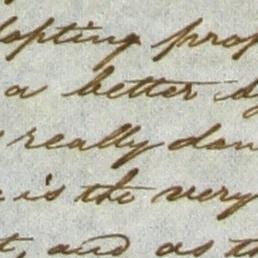 adopting prop
a better sy
really dan
is the very
t, and as th